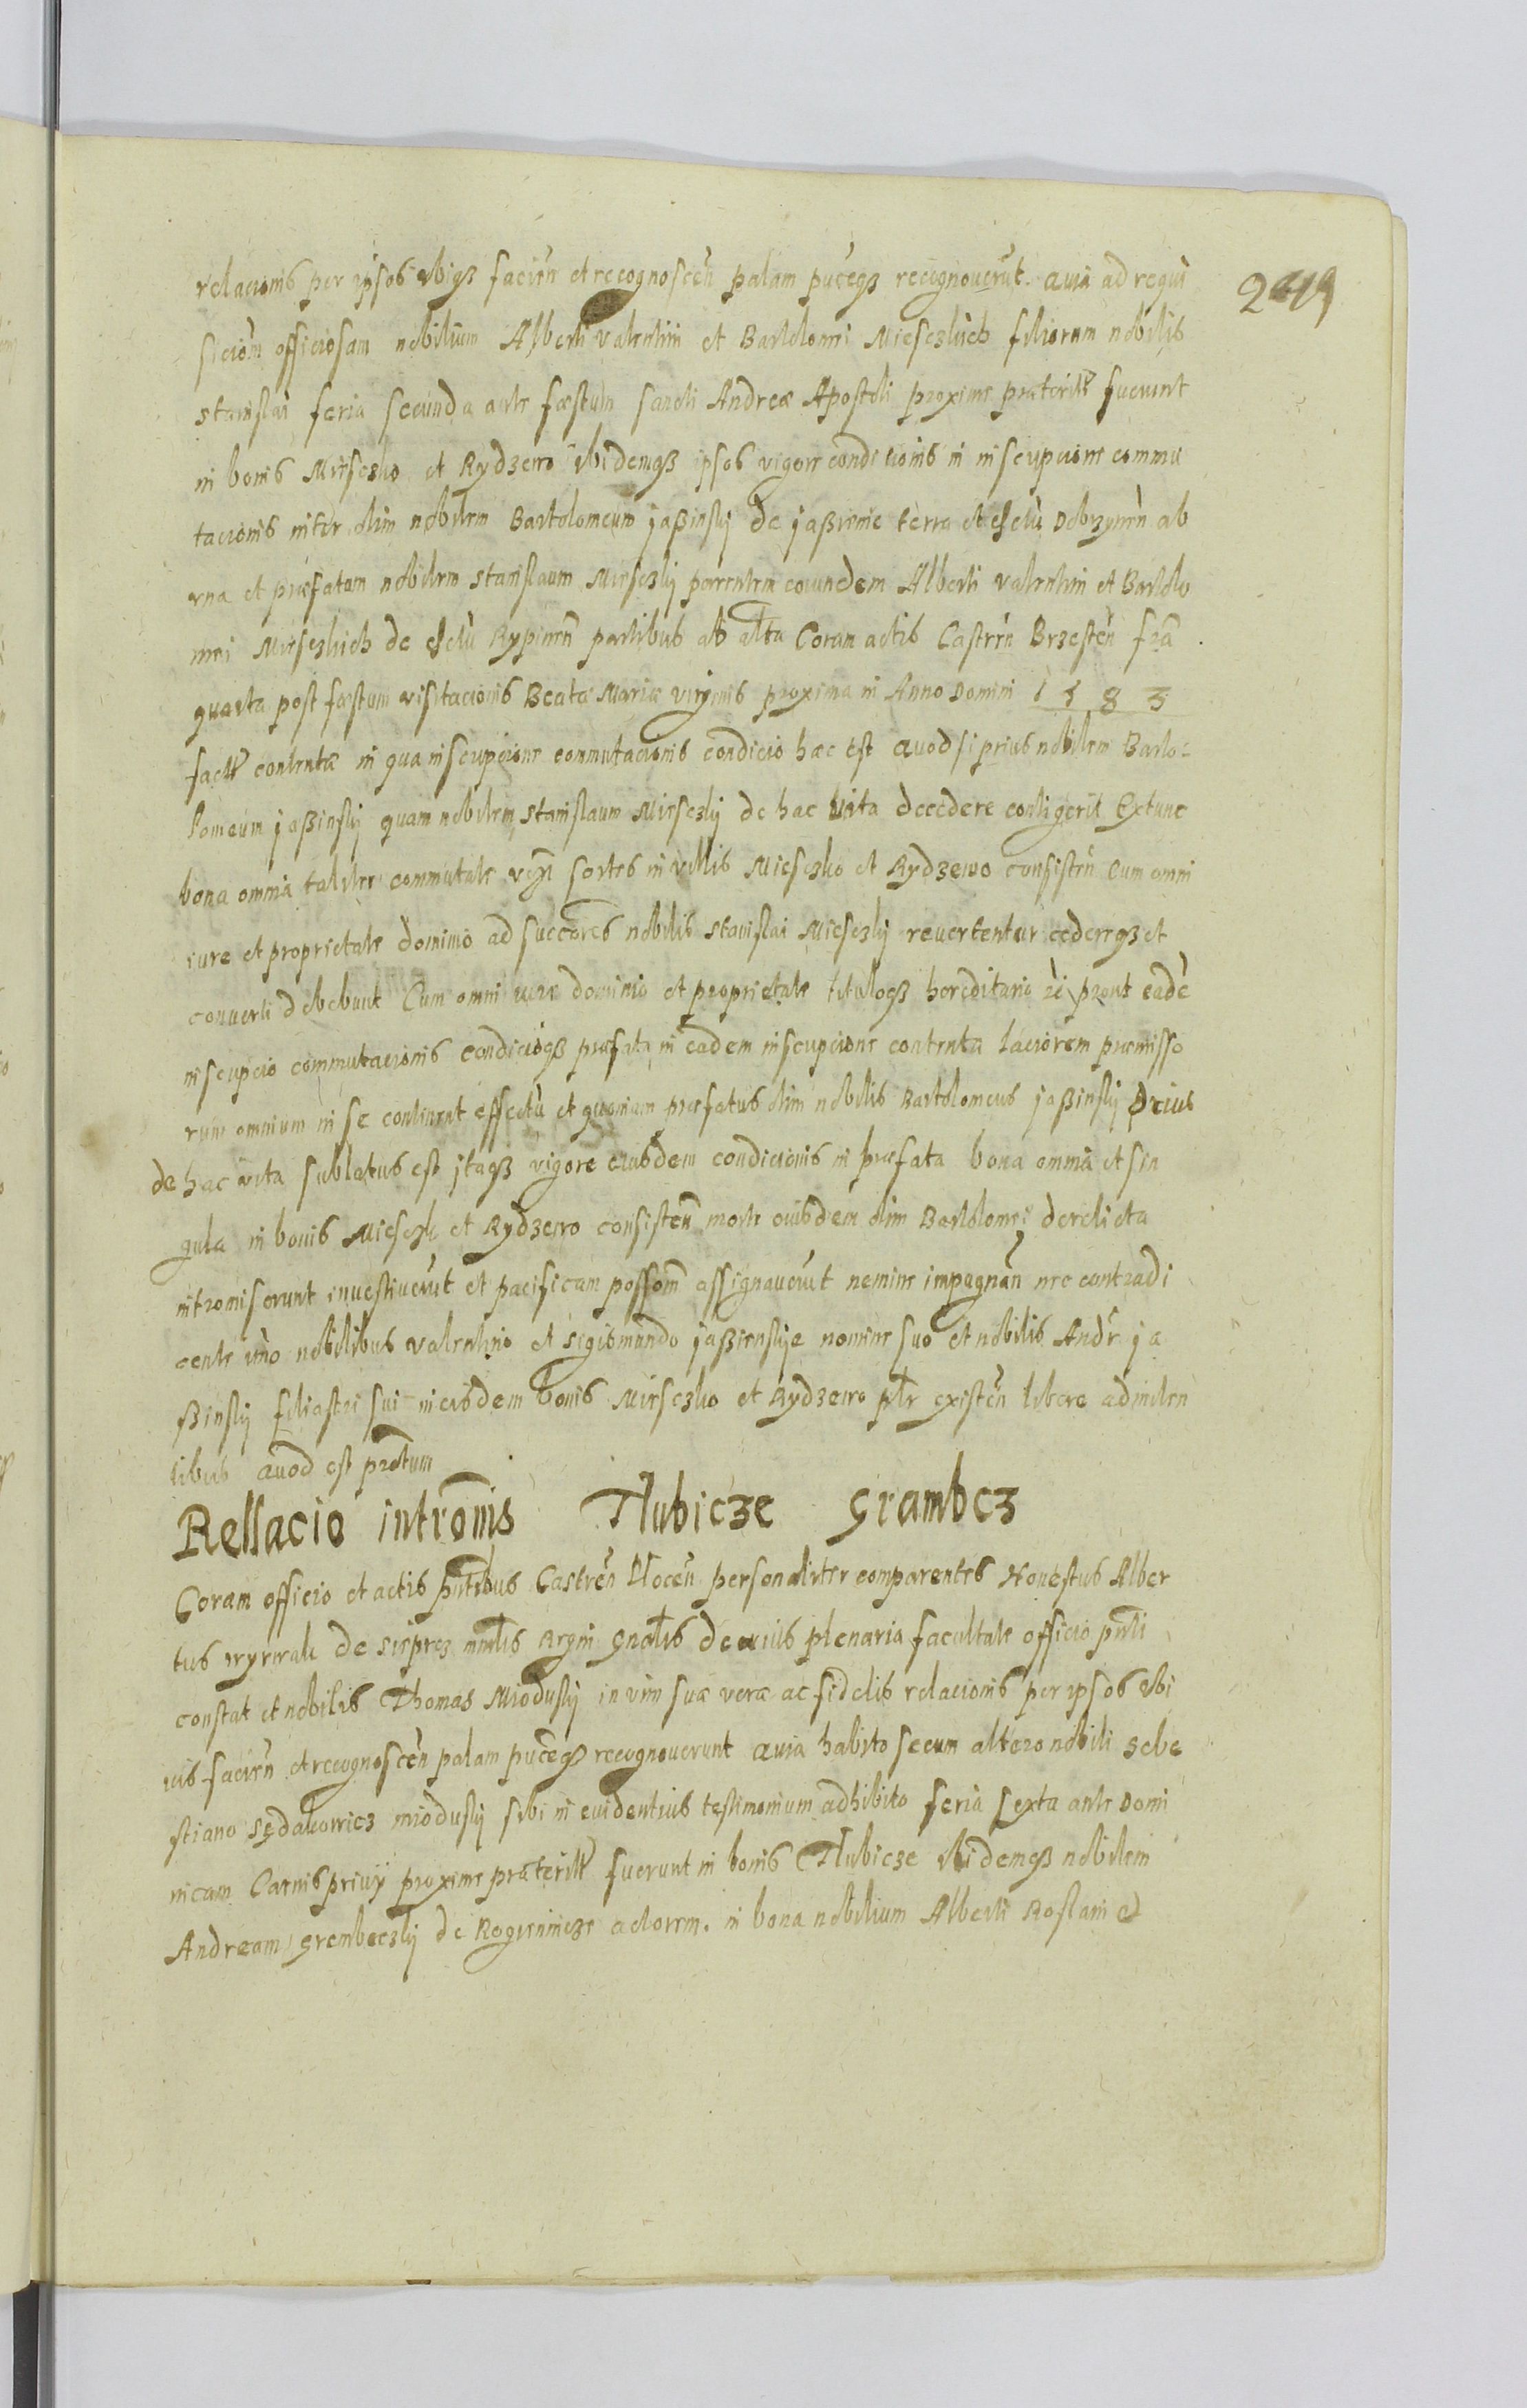 relacionis per ipsos ubiqȝ facien et recognoscen palam puceqȝ recognoverut. Quia ad requi
2419
sicióm officiosam nobilium Alberti Valentini et Bartolomei Miesczkich filiorum nobilis
Stanislai feria secunda ante fæstum Sancti Andreæ Apostoli proxime præterit fuerunt
in bonis Miesczko et Rydzewo ibidemqȝ ipsos vigore condicionis in inscripcione commu
tacionis inter olim nobilem Bartolomeum Jaßinskj de Jaßienie terra et dictu Dobrzynen ab
vna et præfatum nobilem Stanislaum Miesczkj parentem eorundem Alberti Valentini et Bartolo
mei Miesczkich de dictu Rypinen partibus ab altra Coram actis Castren Brzesten fra
quarta post fæstum visitacionis Beatæ Mariæ virginis proxima in Anno Domini 1583
fact contentæ in qua inscripcione commutacionis condicio hæc est Quod si prius nobilem Barto-
lomeum Jaßinskj quam nobilem Stanislaum Miesczkj de hac vita decedere contigerit Extunc
bona omnia taliter commutate vcz sortes in villis Miesczko et Rydzewo consisten Cum omni
iure et proprietate dominio ad succores nobilis Stanislai Miesczkj revertentur cedereqȝ et
converti debebunt Cum omni iure dominio et proprietate tituloqȝ hereditario prout eadè
inscripcio commutacionis condicioqȝ præfata in eadem inscripcione contenta laciorem præmisso
rum omnium in se continent effectù et quoniam præfatus olim nobilis Bartolomeus Jaßinskj prius
de hac vita sublatus est jtaqȝ vigore eiusdem condicionis in præfata bona omnia et sin
gula in bonis Miesczk et Rydzewo consisten morte eiusdem olim Bartolomei derelicta
intromiserunt investiverut et pacificam possom assignaverut nemine impugnan nec contradi
cente imo nobilibus Valentino et Sigismundo Jaßienskye nomine suo et nobilis Andr Ja
ßinskj filiastri sui in eisdem bonis Miesczko et Rydzewo plr existen libere admitten
tibus Quod est prætum
Rellacio intromis Tlubicze Grambcz
Coram officio et actis pntibus Castren Plocen personaliter comparentes Honestus Alber
tus de mnlis Regni gnalis de cuius plenaria facultate officio pnti
constat et nobilis Thomas Mioduskj in vim suæ veræ ac fidelis relacionis per ipsos ubi
vis facien et recognoscen palam pucegȝ recognoverunt Quia habito secum altero nobili Sebe
stiano Sędakowicz Mioduskj sibi in evidentius testimonium adhibito feria sexta ante Domi
nicam Carnisprivij proxime præterit fuerunt in bonis Tlubicze ibidemqȝ nobilem
Andream Grembeczkj de Rogienicze actorem. in bona nobilium Alberti Roslani et